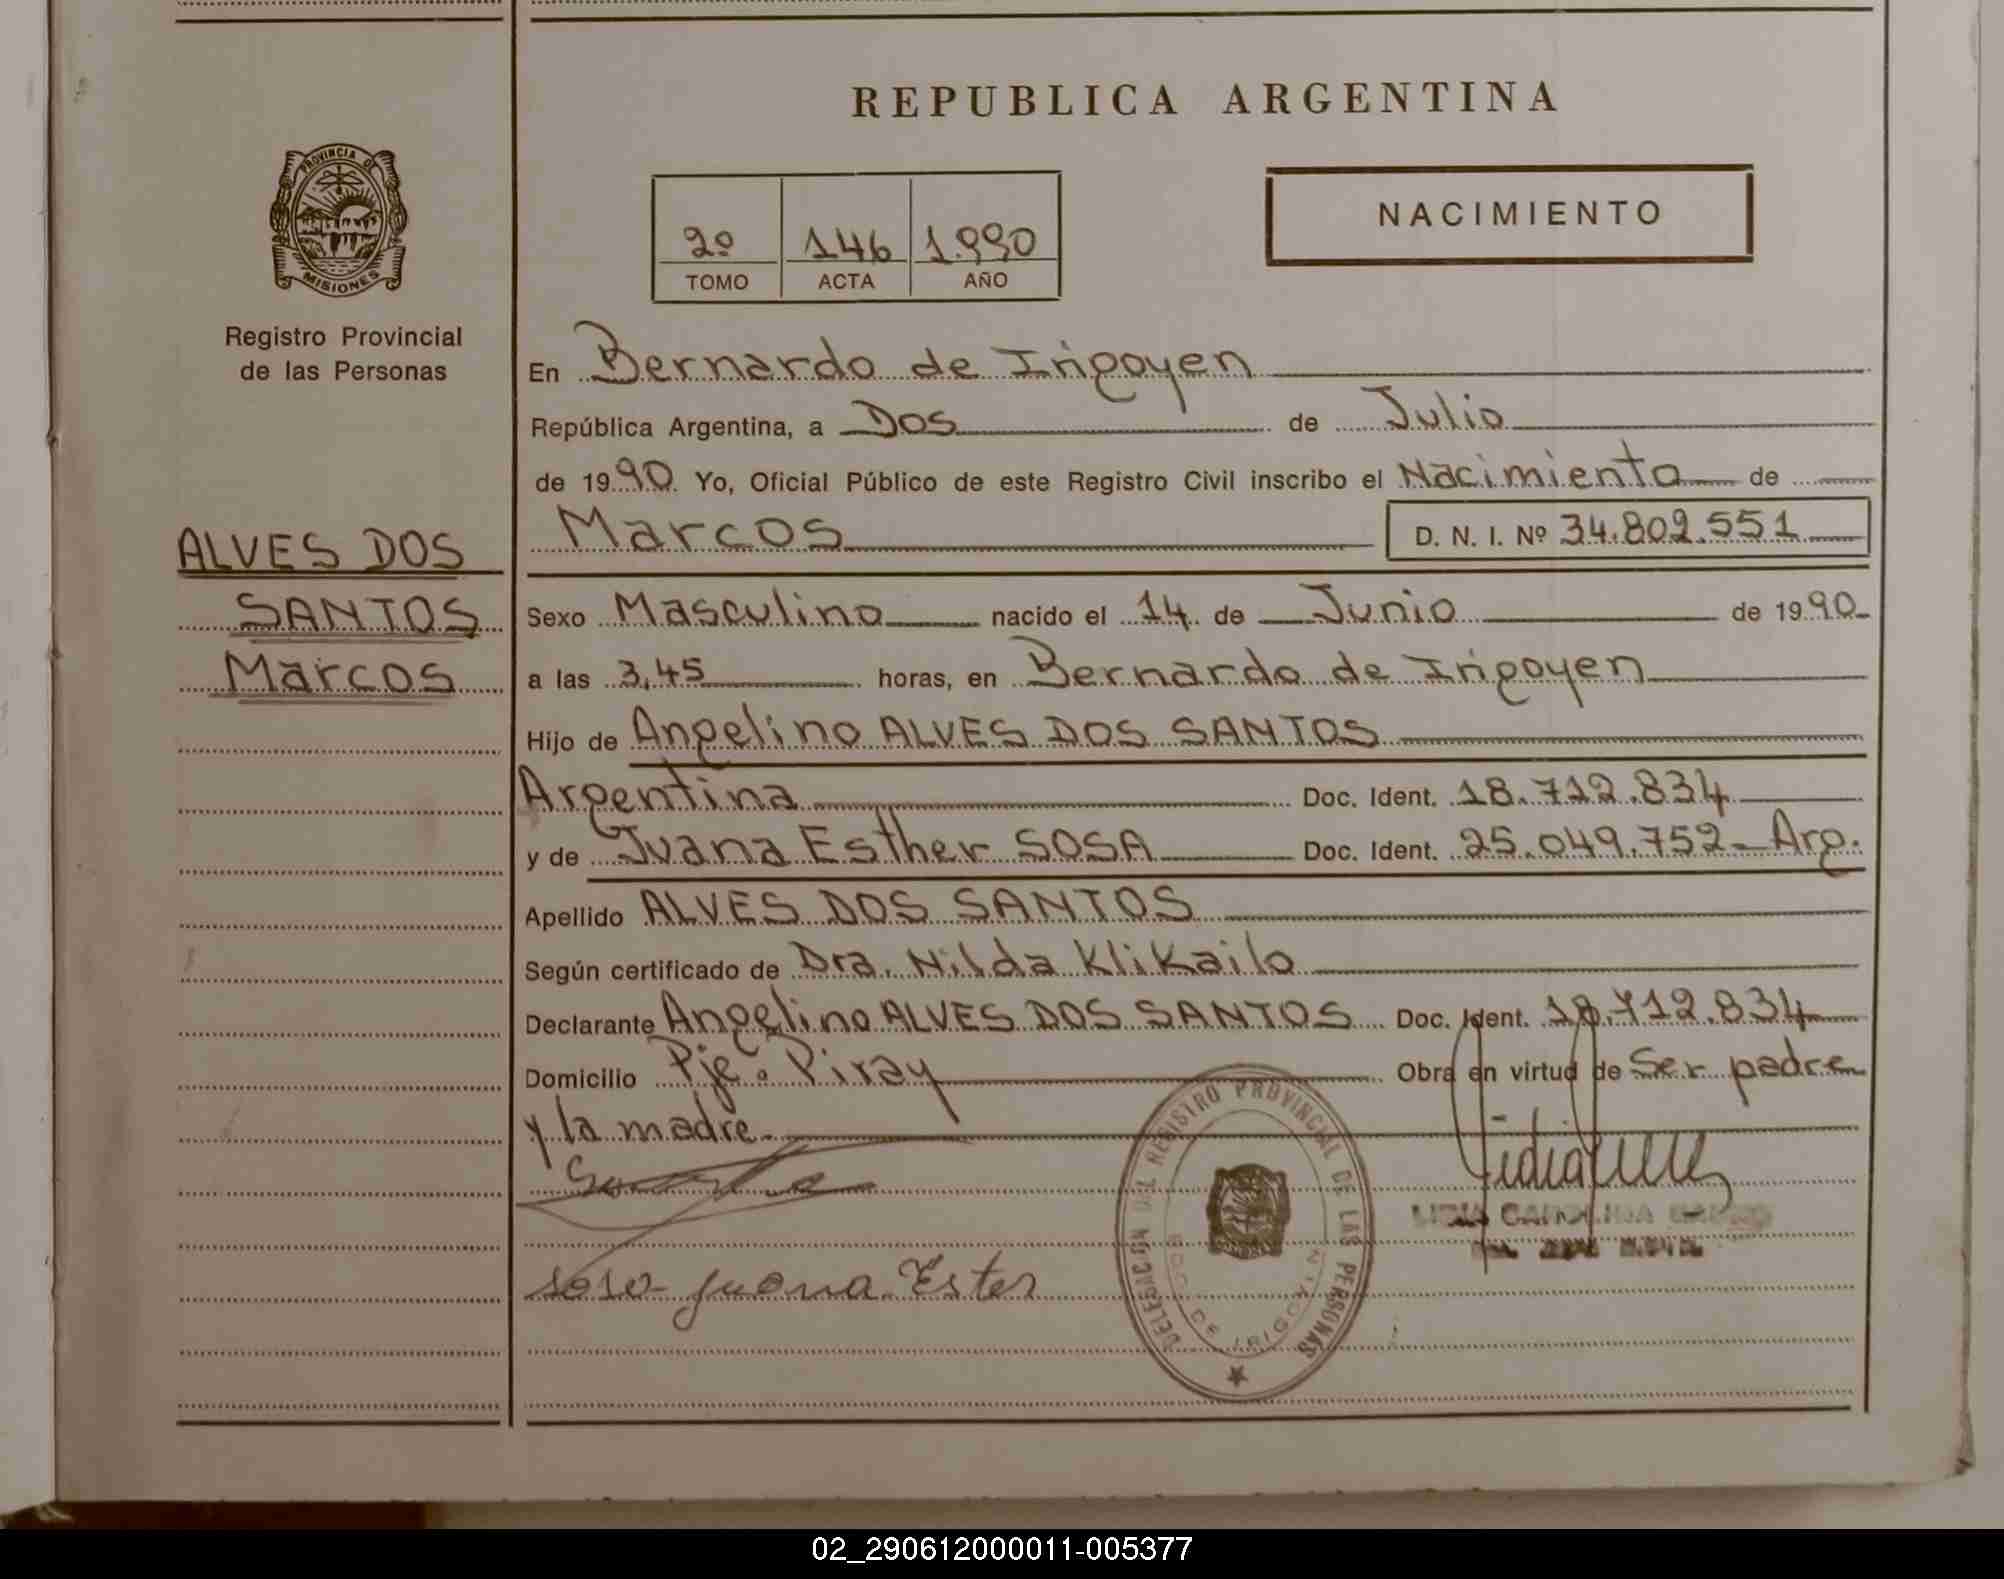 REPUBLICA ARGENTINA
PROVINCIA DE MISIONES
Registro Provincial
de las Personas
2º 146 1.990
TOMO ACTA AÑO
NACIMIENTO
ALVES DOS
SANTOS
Marcos
En Bernardo de Irigoyen
República Argentina, a Dos de Julio
de 1990 Yo, Oficial Público de este Registro Civil inscribo el Nacimiento de
Marcos D. N. I. Nº 34.802.551
Sexo Masculino nacido el 14 de Junio de 1990
a las 3,45 horas, en Bernardo de Irigoyen
Hijo de Angelino ALVES DOS SANTOS
Argentina Doc. Ident. 18.712.834
y de Juana Esther SOSA Doc. Ident. 25.049.752 - Arg.
Apellido ALVES DOS SANTOS
Según certificado de Dra. Nilda Klikailo
Declarante Angelino ALVES DOS SANTOS Doc. Ident. 18.712.834
Domicilio Pje. Piray Obra en virtud de Ser padre
y la madre.
DELEGACION DEL REGISTRO PROVINCIAL DE LAS PERSONAS
BDO. DE IRIGOYEN
LIDIA CAROLINA
soso juana Ester
02_290612000011-005377